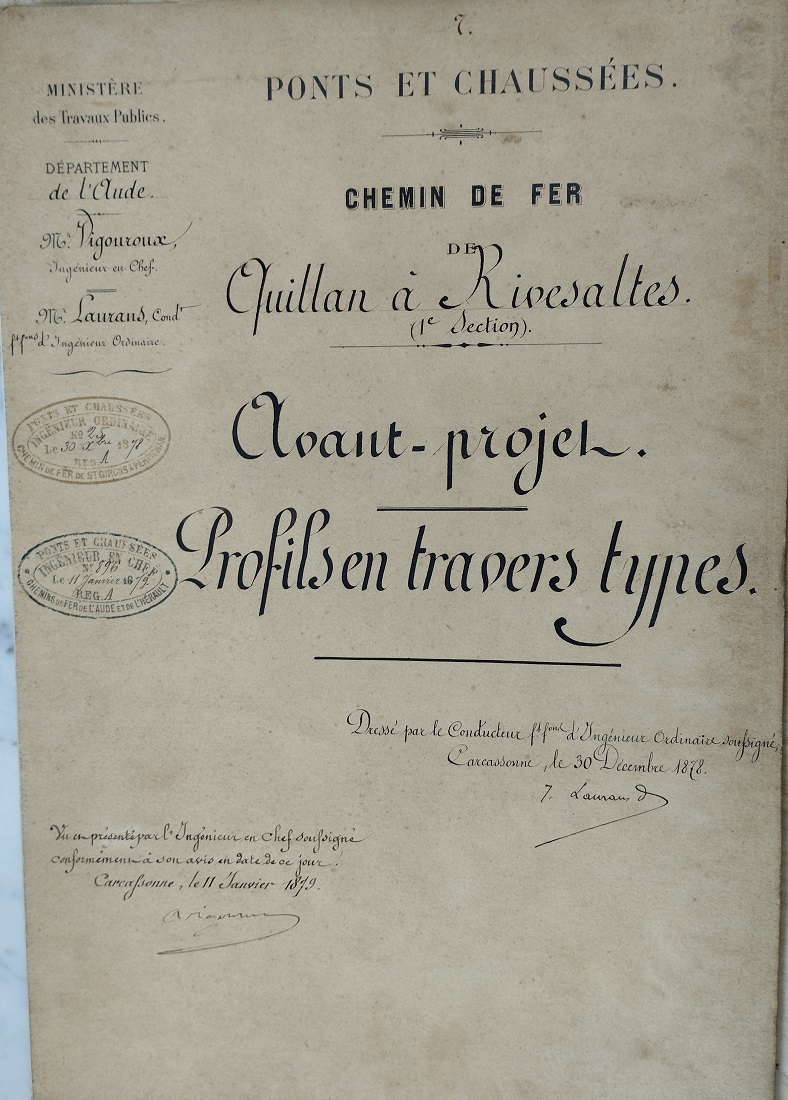 7.
MINISTÈRE
des Travaux Publics.
DÉPARTEMENT
de l'Aude.
Mr. Vigouroux,
Ingénieur en Chef.
Mr. Laurans, Condr
ft fons d'Ingénieur Ordinaire.
PONTS ET CHAUSSÉES
INGÉNIEUR ORDINAIRE
No 25
Le 30 Xbre 1878
REG. A
CHEMIN DE FER DE ST GIRONS A PERPIGNAN
PONTS ET CHAUSSÉES
INGÉNIEUR EN CHEF
No 896
Le 11 Janvier 1879
REG. A
CHEMINS DE FER DE L'AUDE ET DE L'HÉRAULT
PONTS ET CHAUSSÉES.
CHEMIN DE FER
DE
Quillan à Rivesaltes.
(1e Section).
Avant-projet.
Profils en travers types.
Dressé par le Conducteur ft fons d'Ingénieur Ordinaire soussigné,
Carcassonne, le 30 Décembre 1878.
J. Laurans
Vu et présenté par l'Ingénieur en Chef soussigné
conformément à son avis en date de ce jour.
Carcassonne, le 11 Janvier 1879.
Vigouroux